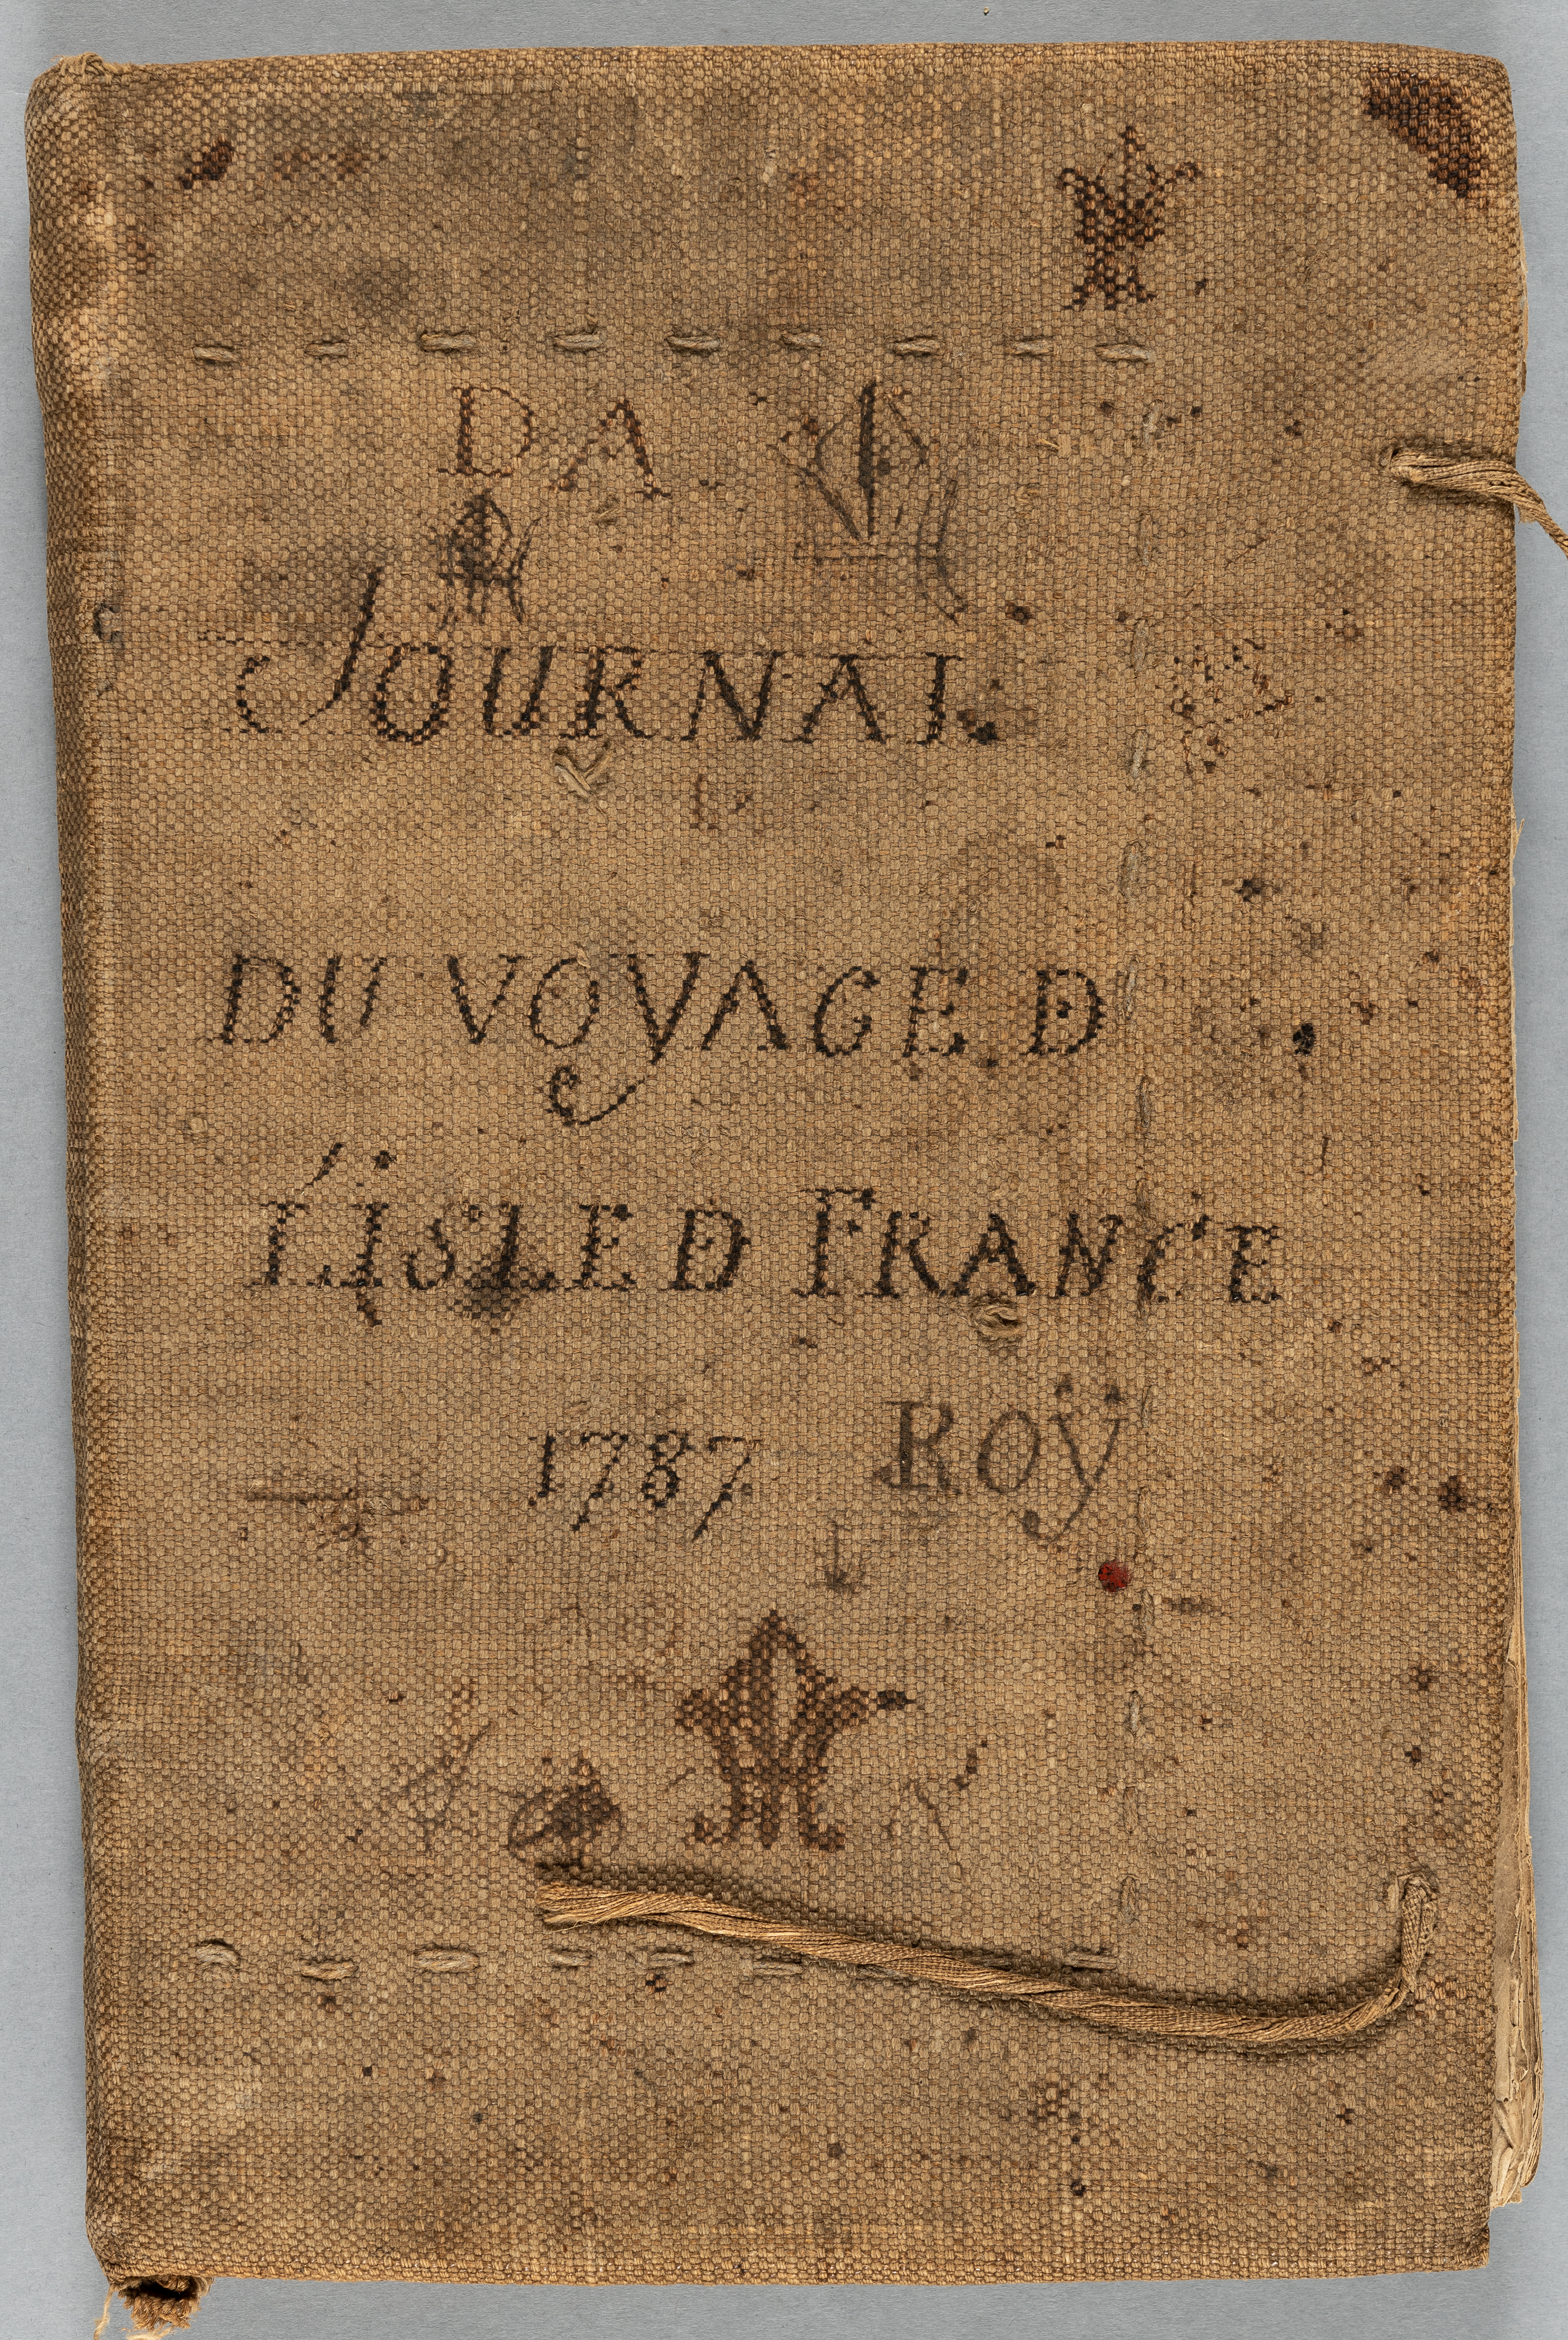 DA
JOURNAL
DU VOYAGE DE
L'iSLE DE FRANCE
1787 ROÿ